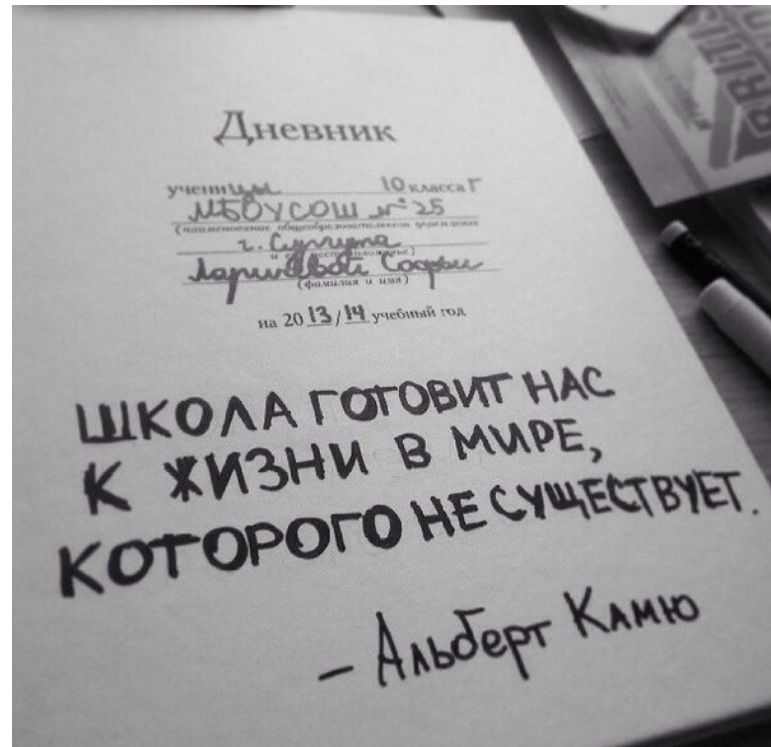 Дневник
ученицы 10 класса Г
МБОУСОШ №25
(наименование общеобразовательного учреждения
г. Сургута
и его местоположение)
Софьи
(фамилия и имя)
на 20 13 / 14 учебный год
ШКОЛА ГОТОВИТ НАС
К ЖИЗНИ В МИРЕ,
КОТОРОГО НЕ СУЩЕСТВУЕТ.
– Альберт Камю